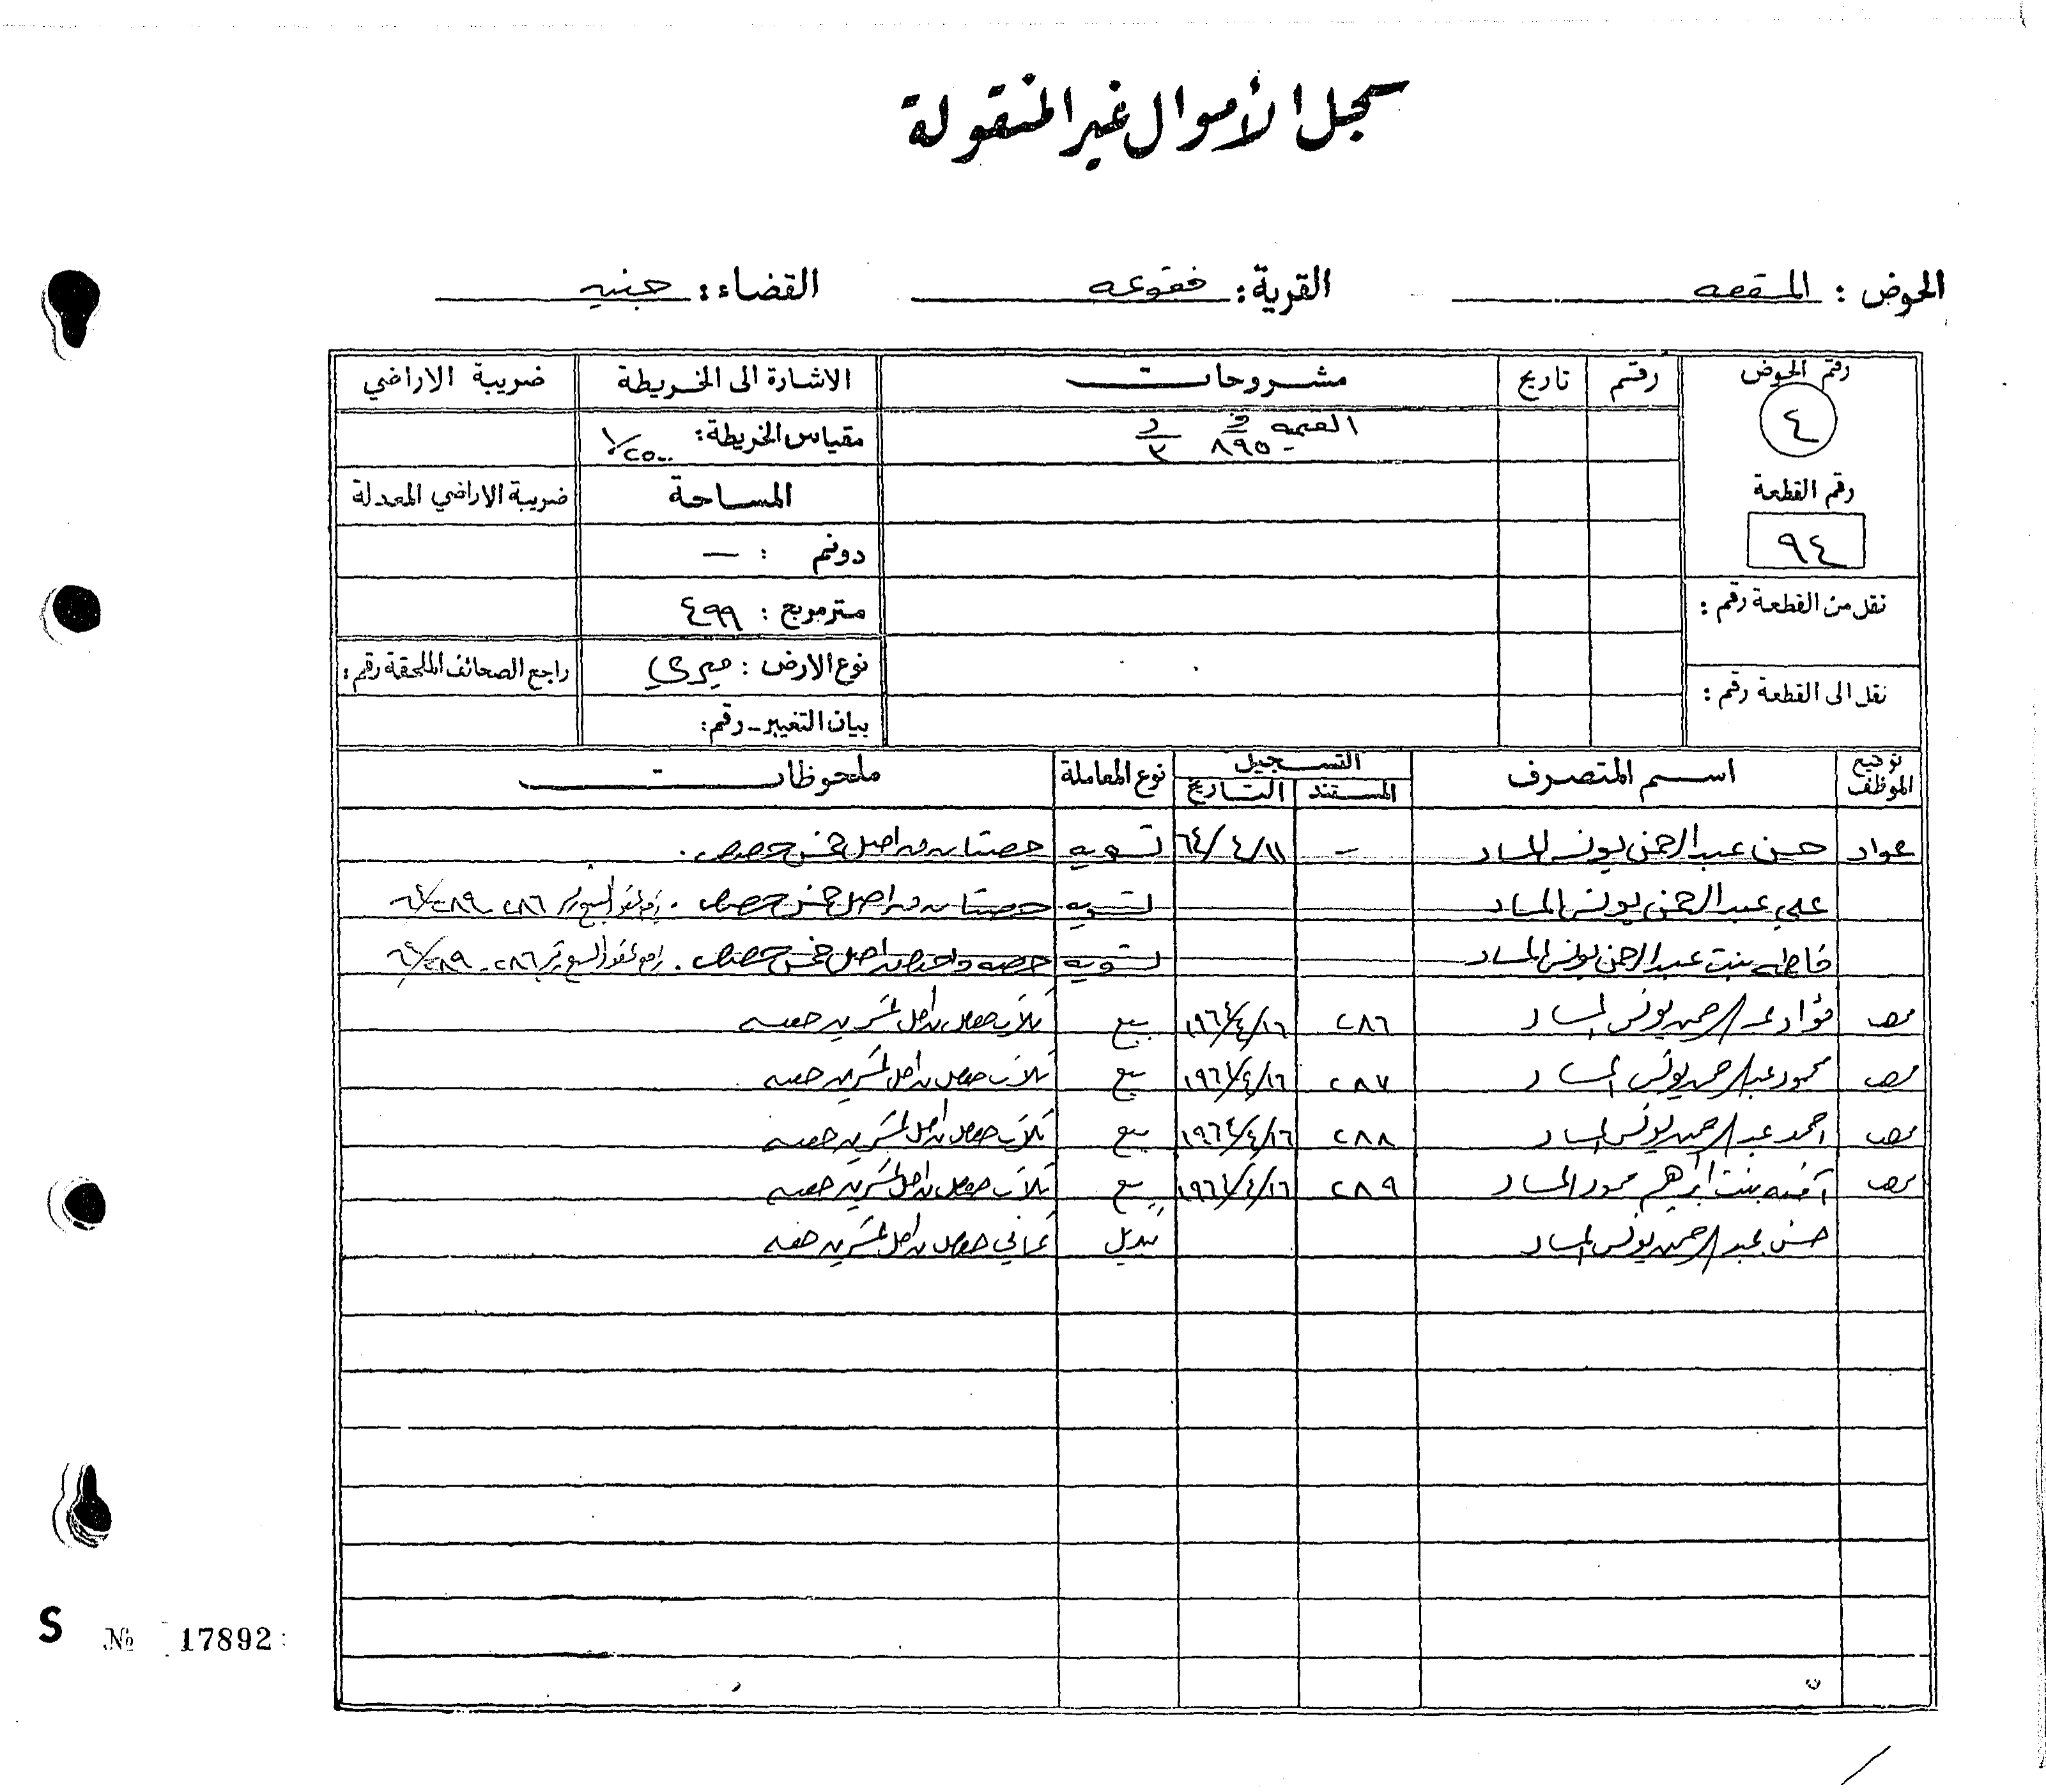 سجل الأموال غير المنقولة
الحوض : المسقفه القرية: فقوعه القضاء: جنين
رقم الحوض رقم تاريخ مشروحات الاشارة الى الخريطة ضريبة الاراضي
٤ القيمه ف ٨٩٥ د ٢ مقياس الخريطة: ١/٢٥٠٠
رقم القطعة المساحة ضريبة الاراضي المعدلة
٩٤ دونم : —
نقل من القطعة رقم : متر مربع : ٤٩٩
نوع الارض : ميري راجع الصحائف الملحقة رقم :
نقل الى القطعة رقم : بيان التغيير - رقم:
توقيع الموظف اسم المتصرف التسجيل نوع المعاملة ملحوظات
المستند التاريخ
عواد حسن عبد الرحمن يونس المساد - ٦٤/٤/١١ تسويه حصتان من اصل خمس حصص .
علي عبد الرحمن يونس المساد تسويه حصتان من اصل خمس حصص . راجع عقد البيع رقم ٢٨٦-٢٨٩/٦٤
فاطمه بنت عبد الرحمن يونس المساد تسويه حصه واحده من اصل خمس حصص . راجع عقد البيع رقم ٢٨٦-٢٨٩/٦٤
فؤاد عبد الرحمن يونس المساد ٢٨٦ ١٩٦٤/٤/١٦ بيع ثلاث حصص من اصل عشرين حصه
محمود عبد الرحمن يونس المساد ٢٨٧ ١٩٦٤/٤/١٦ بيع ثلاث حصص من اصل عشرين حصه
احمد عبد الرحمن يونس المساد ٢٨٨ ١٩٦٤/٤/١٦ بيع ثلاث حصص من اصل عشرين حصه
آمنه بنت ابراهيم محمود المساد ٢٨٩ ١٩٦٤/٤/١٦ بيع ثلاث حصص من اصل عشرين حصه
حسن عبد الرحمن يونس المساد تبديل ثماني حصص من اصل عشرين حصه
S № 17892